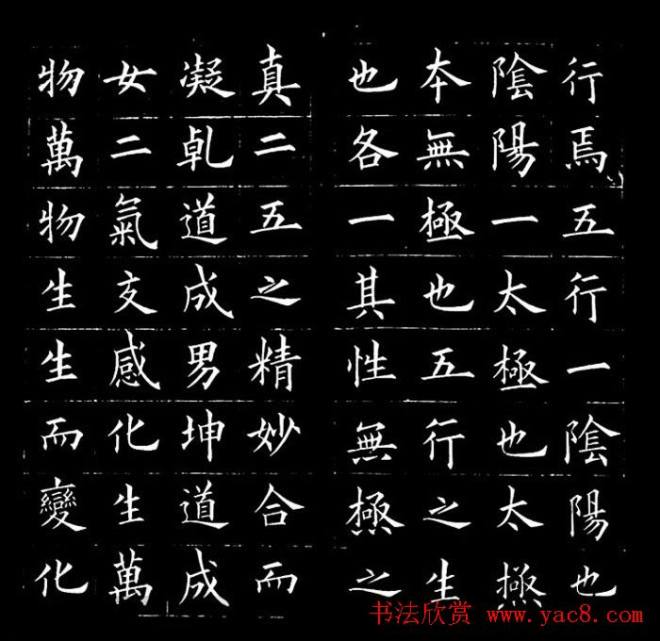 行焉五行一陰陽也
陰陽一太極也太極
本無極也五行之生
也各一其性無極之
真二五之精妙合而
凝乹道成男坤道成
女二氣交感化生萬
物萬物生生而變化
书法欣赏 www.yac8.com